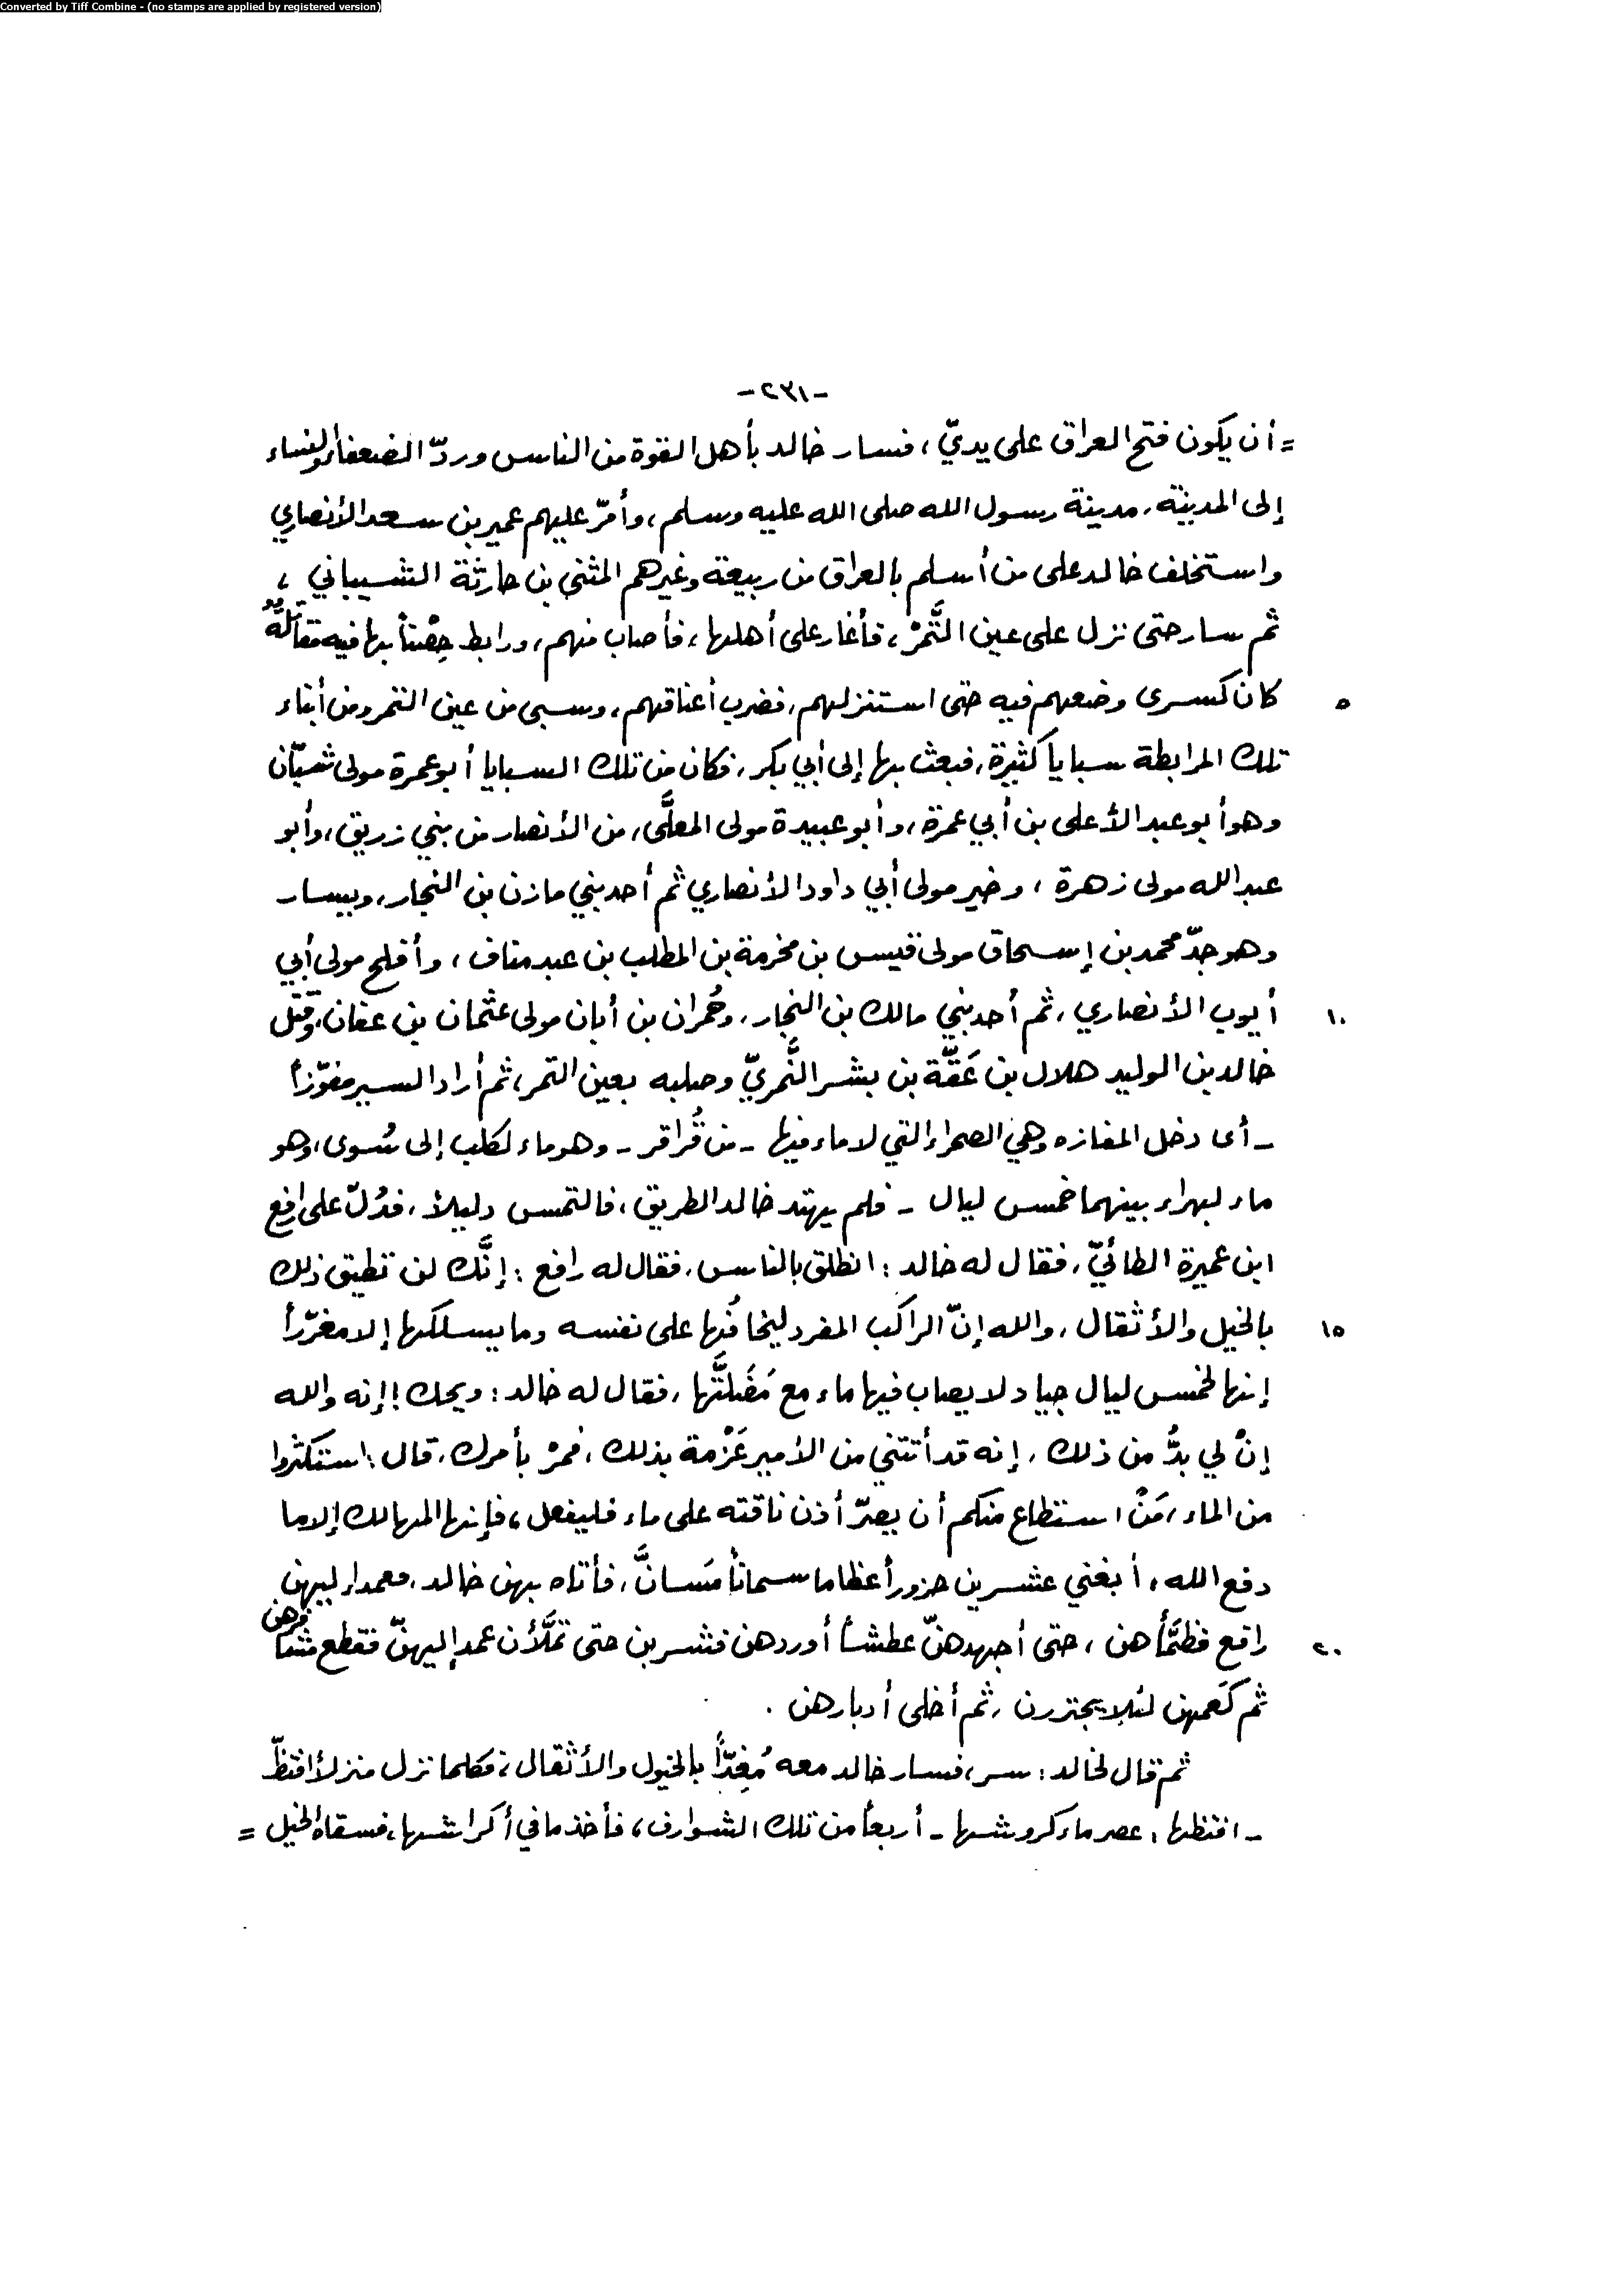 Converted by Tiff Combine - (no stamps are applied by registered version)
-٢٣١-
= أن يكون فتح العراق على يديّ، فسار خالد بأهل القوة من الناس وردّ الضعفاء والنساء
إلى المدينة، مدينة رسول الله صلى الله عليه وسلم، وأمّر عليهم عمير بن سعد الأنصاري
واستخلف خالد على من أسلم بالعراق من ربيعة وغيرهم المثنى بن حارثة الشيباني،
ثم سار حتى نزل على عين التَّمْر، فأغار على أهلها، فأصاب منهم، ورابط حِصْناً بها فيه مقاتلةٌ
٥ كان كسرى وضعهم فيه حتى استنزلهم، فضرب أعناقهم، وسبى من عين التمر ومن أبناء
تلك المرابطة سبايا كثيرة، فبعث بها إلى أبي بكر، فكان من تلك السبايا أبو عمرة مولى شبّان
وهو أبو عبد الأعلى بن أبي عمرة، وأبو عبيدة مولى المعلَّى، من الأنصار من بني زريق، وأبو
عبد الله مولى زهرة، وخير مولى أبي داود الأنصاري ثم أحد بني مازن بن النجار، ويسار
وهو جدّ محمد بن إسحاق مولى قيس بن مخرمة بن المطلب بن عبد مناف، وأفلح مولى أبي
١٠ أيوب الأنصاري، ثم أحد بني مالك بن النجار، وحُمران بن أبان مولى عثمان بن عفان، وقتل
خالد بن الوليد هلال بن عَقَّة بن بشر النَّمريّ وصلبه بعين التمر، ثم أراد السير مفوّزاً
- أى دخل المفازه وهي الصحراء التي لا ماء فيها - من قُراقر - وهو ماء لكلب إلى سُوى، وهو
ماء لبهراء بينهما خمس ليال - فلم يهتد خالد الطريق، فالتمس دليلاً، فدُلّ على رافع
ابن عميرة الطائيّ، فقال له خالد: انطلق بالناس، فقال له رافع: إنَّك لن تطيق ذلك
١٥ بالخيل والأثقال، والله إنّ الراكب المفرد ليخافُها على نفسه وما يسلكها إلا مغرّراً
إنها لخمس ليال جياد لا يصاب فيها ماء مع مَضَلَّتها، فقال له خالد: ويحك! إنه والله
إنْ لي بدٌّ من ذلك، إنه قد أتتني من الأمير عَزْمة بذلك، فمرْ بأمرك، قال: استكثروا
من الماء، مَنْ استطاع منكم أن يصرّ أذن ناقته على ماء فليفعل، فإنها المهالك إلا ما
دفع الله، أبغني عشرين جزوراً عظاما سماناً مَسانَّ، فأتاه بهن خالد، فعمد إليهن
٢٠ رافع فظمَّأهن، حتى أجهدهنّ عطشاً أوردهن فشربن حتى تملَّأن عمد إليهنّ فقطع مشافرهن
ثم كعمهن لئلا يجتررن، ثم أخلى أدبارهن.
ثم قال لخالد: سر، فسار خالد معه مُغِذّاً بالخيول والأثقال، فكلما نزل منزلاً افتظّ
- افتظها: عصر ماء كروشها - أربعاً من تلك الشوارف، فأخذ ما في أكراشها، فسقاه الخيل =